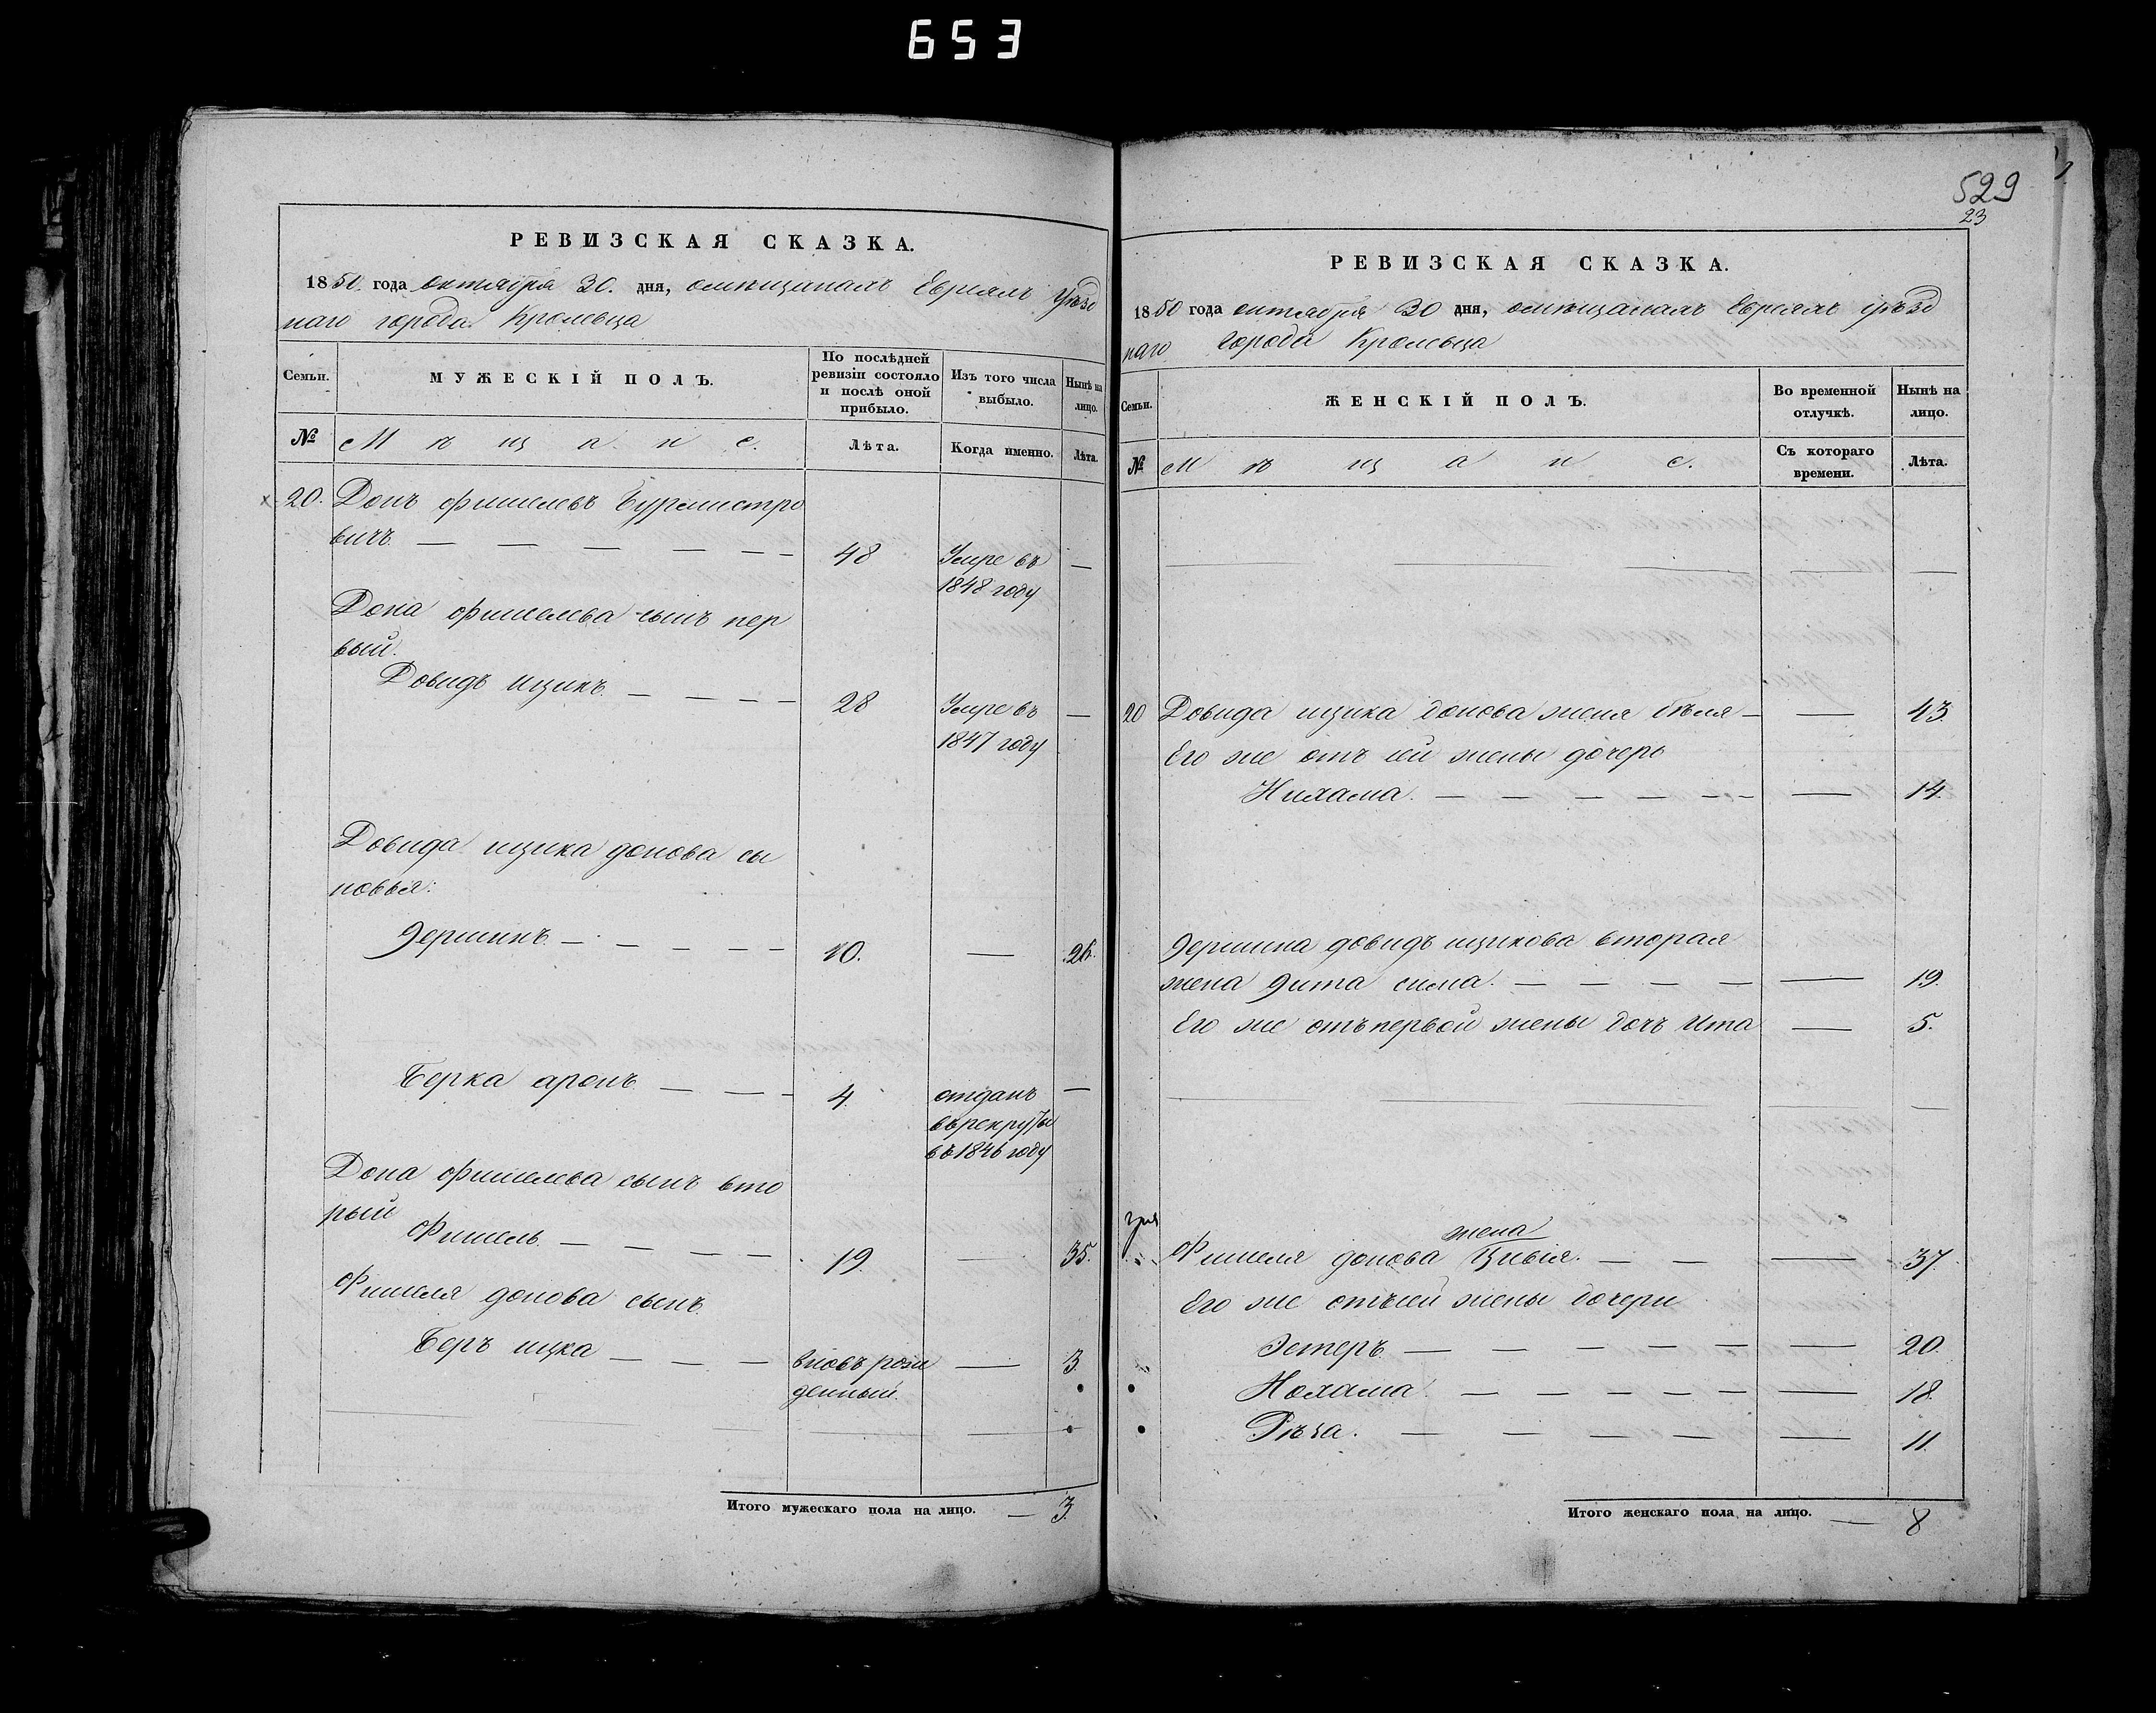 653
529
23
РЕВИЗСКАЯ СКАЗКА.
1850. года октября 30. дня, омѣщанахъ Евреяхъ уѣзд
наго города Кролевца
Семьи.
МУЖЕСКІЙ ПОЛЪ.
По послѣдней ревизіи состояло и послѣ оной прибыло.
Изъ того числа выбыло.
Нынѣ на лицо.
№
Мѣщане.
Лѣта.
Когда именно.
Лѣта.
20. Донъ фишелевъ Бурмистро
вичъ. — 48 Умре въ —
1848 году
Дона фишелева сынъ пер
вый.
Довидъ ицикъ. — 28 Умре въ —
1847 году
Довида ицика донова сы
новья:
Эершинъ — 10. — 26.
Берка аронъ — 4. отданъ —
врекруты
въ 1846 году
Дона фишелева сынъ вто
рый
Фишель. — 19. — 35.
Фишеля донова сынъ.
Беръ ицка — вновь рож — 3.
денный.
Итого мужескаго пола на лицо. — 3.
РЕВИЗСКАЯ СКАЗКА.
1850 года октября 30 дня, омѣщанахъ Евреяхъ уѣзд
наго города Кролевца
Семьи.
ЖЕНСКІЙ ПОЛЪ.
Во временной отлучкѣ.
Нынѣ на лицо.
№
Мѣщане.
Съ котораго времени.
Лѣта.
20 Довида ицика донова жена Бѣля — — 43.
Его же отъ сей жены дочерь
Нихама. — — 14.
Эершина довидъ ицикова вторая
жена Эита сима. — — 19.
Его же отъ первой жены дочь Ита — 5.
жена
Фишеля донова Цивія. — — 37.
Его же отъ сей жены дочери
Эстеръ — — 20.
Нохама. — — 18.
Рѣза. — — 11.
Итого женскаго пола на лицо. — 8